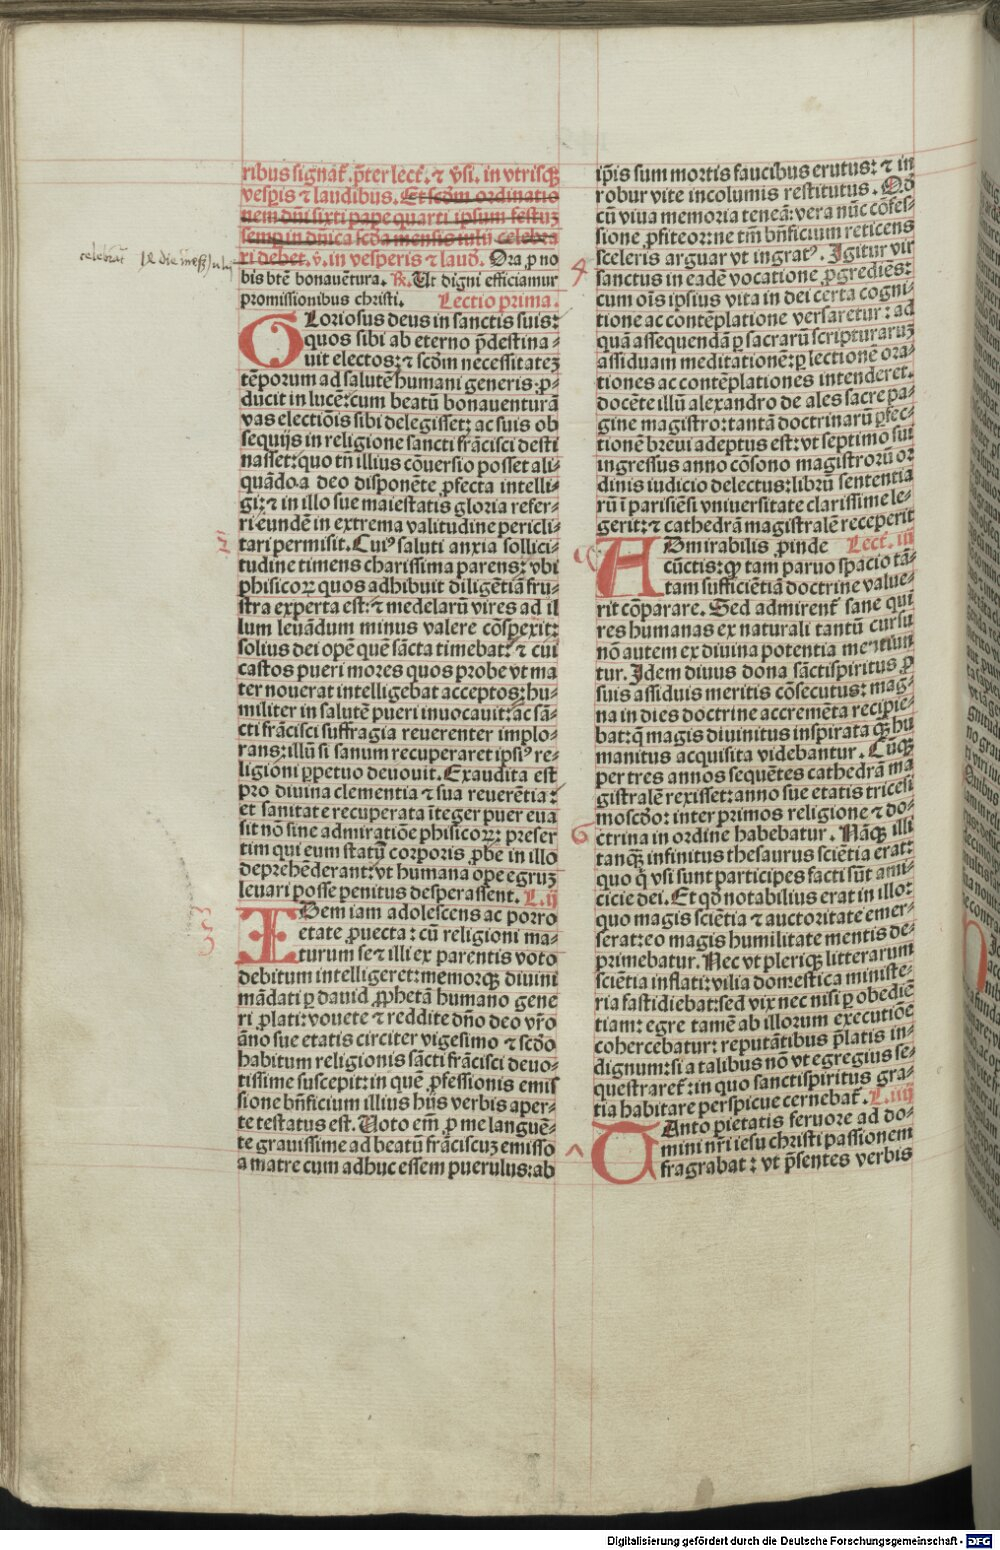 ribus signat̃. p̃ter lect̃. ⁊ v̓si. in vtrisq̃
vesp̃is ⁊ laudibus. Et scðm ordinatio
nem dñi sixti pape quarti ipsum festuȝ
semp in dñica scða mensis iulij celebra
ri debet. v̓. in vesperis ⁊ laud̃. Ora ꝓ no
celebrat̃ die mẽs Julij
bis btẽ bonauẽtura. ℞. Ut digni efficiamur
promissionibus christi. Lectio prima.
GLoriosus deus in sanctis suis:
quos sibi ab eterno p̃destina⸗
uit electos: ⁊ scðm necessitateȝ
tẽporum ad salutẽ humani generis ꝓ⸗
ducit in lucẽ: cum beatũ bonauenturã
vas electiõis sibi delegisset: ac suis ob
sequijs in religione sancti frãcisci desti
nasset: quo tñ illius cõuersio posset ali⸗
quãdo a deo disponẽte ꝓfecta intelli⸗
gi: ⁊ in illo sue maiestatis gloria refer⸗
ri eundẽ in extrema valitudine pericli⸗
tari permisit. Cuiꝰ saluti anxia sollici⸗
tudine timens charissima parens: vbi
phisicoꝝ quos adhibuit diligẽtiã fru⸗
stra experta est: ⁊ medelarũ vires ad il
lum leuãdum minus valere cõspexit:
solius dei opẽ quẽ sãcta timebat: ⁊ cui
castos pueri mores quos probe vt ma
ter nouerat intelligebat acceptos: hu⸗
militer in salutẽ pueri inuocauit: ac sã⸗
cti frãcisci suffragia reuerenter implo⸗
rans: illũ si sanum recuperaret ipsiꝰ re⸗
ligioni ꝑpetuo deuouit. Exaudita est
pro diuina clementia ⁊ sua reuerẽtia:
et sanitate recuperata ĩteger puer eua
sit nõ sine admiratiõe phisicoꝝ: preser
tim qui eum statũ corporis ꝓbe in illo
deprehẽderant: vt humana ope egruȝ
leuari posse penitus desperassent. L. ij
IDem iam adolescens ac porro
etate ꝓuecta: cũ religioni ma⸗
turum se ⁊ illi ex parentis voto
debitum intelligeret: memorq̃ diuini
mãdati ꝑ dauid ꝓphetã humano gene
ri ꝓlati: vouete ⁊ reddite dño deo vr̃o
ãno sue etatis circiter vigesimo ⁊ scðo
habitum religionis sãcti frãcisci deuo⸗
tissime suscepit: in quẽ ꝓfessionis emis
sione bñficium illius hijs verbis aper⸗
te testatus est. Uoto em̃ ꝓ me languẽ⸗
te grauissime ad beatũ frãciscuȝ emisso
a matre cum adhuc essem puerulus: ab
ip̃is sum mortis faucibus erutus: ⁊ in
robur vite incolumis restitutus. Qð
cũ viua memoria teneã: vera nũc cõfes⸗
sione ꝓfiteor: ne tm̃ bñficium reticens
sceleris arguar vt ingratꝰ. Igitur vir
sanctus in eadẽ vocatione ꝓgrediẽs:
cum oĩs ipsius vita in dei certa cogni⸗
tione ac contẽplatione versaretur: ad
quã assequendã ꝑ sacrarũ scripturaruȝ
assiduam meditationẽ: ꝑ lectionẽ ora⸗
tiones ac contẽplationes intenderet.
docẽte illũ alexandro de ales sacre pa⸗
gine magistro: tantã doctrinarũ ꝑfec⸗
tionẽ breui adeptus est: vt septimo sui
ingressus anno cõsono magistrorũ or
dinis iudicio delectus: librũ sententia
rũ ĩ parisiẽsi vniuersitate clarissime le⸗
gerit: ⁊ cathedrã magistralẽ receperit
ADmirabilis ꝓinde Lect̃. iij
cũctis: ꝙ tam paruo spacio tã⸗
tam sufficiẽtiã doctrine value⸗
rit cõparare. Sed admirent̃ sane qui
res humanas ex naturali tantũ cursu
nõ autem ex diuina potentia mentiun
tur. Idem diuus dona sãctispiritus ꝓ
suis assiduis meritis cõsecutus: mag⸗
na in dies doctrine accremẽta recipie⸗
bat: q̃ magis diuinitus inspirata q̃ȝ hu
manitus acquisita videbantur. Cũq̃
per tres annos sequẽtes cathedrã ma
gistralẽ rexisset: anno sue etatis tricesi
moscðo: inter primos religione ⁊ do⸗
ctrina in ordine habebatur. Nãq̃ illi
tanq̃ȝ infinitus thesaurus sciẽtia erat:
quo q̃ vsi sunt participes facti sũt ami⸗
cicie dei. Et qð notabilius erat in illo:
quo magis sciẽtia ⁊ auctoritate emer⸗
serat: eo magis humilitate mentis de⸗
primebatur. Nec vt pleriq̃ litterarum
sciẽtia inflati: vilia domestica ministe⸗
ria fastidiebat: sed vix nec nisi ꝑ obediẽ
tiam: egre tamẽ ab illorum executiõe
cohercebatur: reputãtibus p̃latis in⸗
dignum: si a talibus nõ vt egregius se⸗
questraret̃: in quo sanctispiritus gra⸗
tia habitare perspicue cernebat̃. L. iiij
TAnto pietatis feruore ad do⸗
mini nr̃i iesu christi passionem
fragrabat: vt p̃sentes verbis
Digitalisierung gefördert durch die Deutsche Forschungsgemeinschaft - DFG